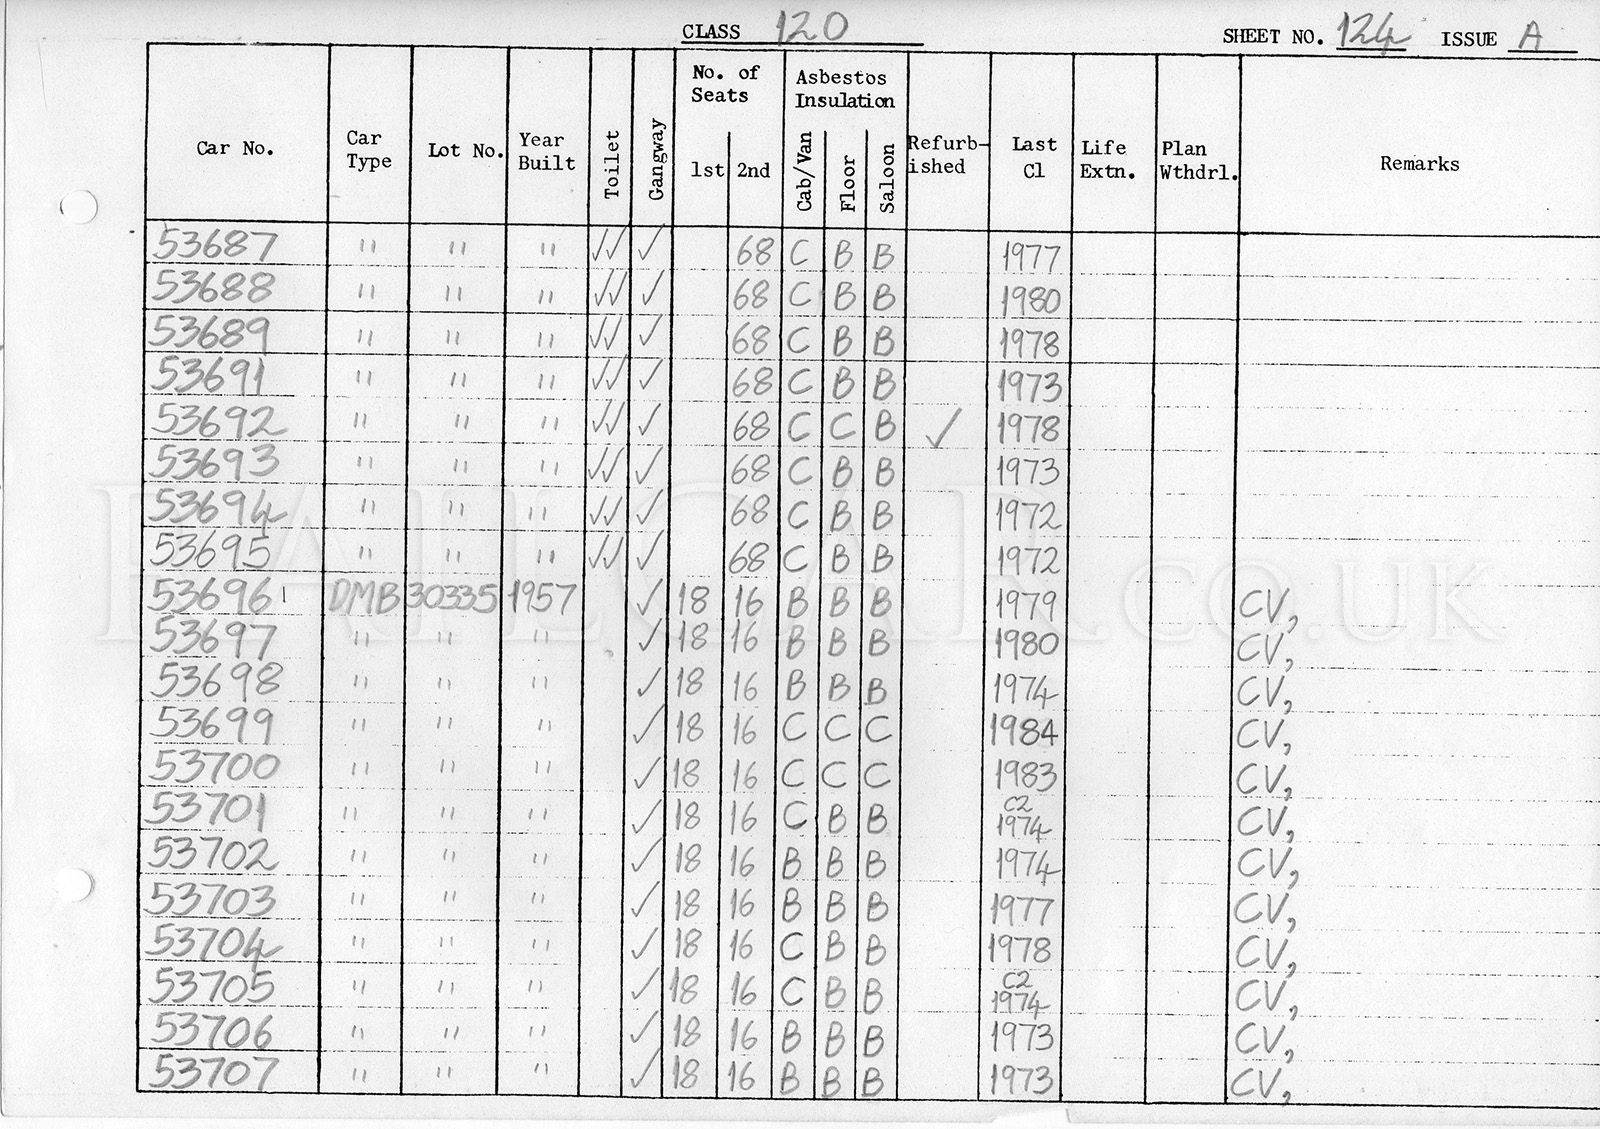 CLASS 120 SHEET NO. 124 ISSUE A
Car No. Car Type Lot No. Year Built Toilet Gangway No. of Seats 1st 2nd Asbestos Insulation Cab/Van Floor Saloon Refurb-ished Last Cl Life Extn. Plan Wthdrl. Remarks
53687 " " " ✓✓ ✓ 68 C B B 1977
53688 " " " ✓✓ ✓ 68 C B B 1980
53689 " " " ✓✓ ✓ 68 C B B 1978
53691 " " " ✓✓ ✓ 68 C B B 1973
53692 " " " ✓✓ ✓ 68 C C B ✓ 1978
53693 " " " ✓✓ ✓ 68 C B B 1973
53694 " " " ✓✓ ✓ 68 C B B 1972
53695 " " " ✓✓ ✓ 68 C B B 1972
53696 DMB 30335 1957 ✓ 18 16 B B B 1979 CV,
53697 " " " ✓ 18 16 B B B 1980 CV,
53698 " " " ✓ 18 16 B B B 1974 CV,
53699 " " " ✓ 18 16 C C C 1984 CV,
53700 " " " ✓ 18 16 C C C 1983 CV,
53701 " " " ✓ 18 16 C B B C2 1974 CV,
53702 " " " ✓ 18 16 B B B 1974 CV,
53703 " " " ✓ 18 16 B B B 1977 CV,
53704 " " " ✓ 18 16 C B B 1978 CV,
53705 " " " ✓ 18 16 C B B C2 1974 CV,
53706 " " " ✓ 18 16 B B B 1973 CV,
53707 " " " ✓ 18 16 B B B 1973 CV,
RAILCAR.CO.UK